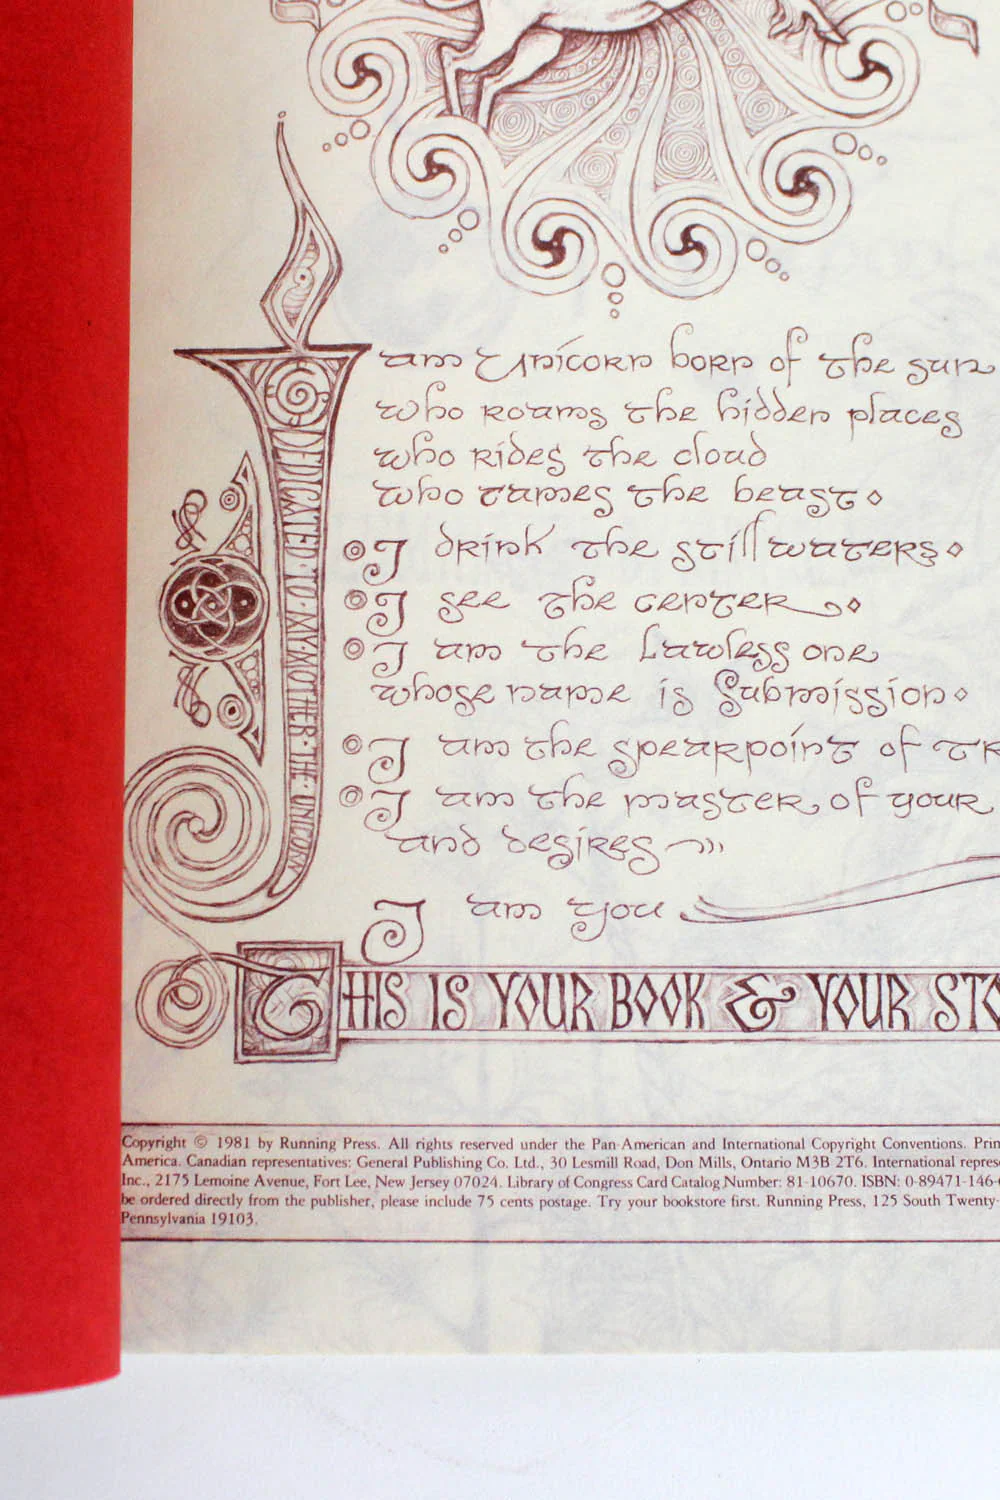 I am Unicorn born of the sun
who roams the hidden places
who rides the cloud
who tames the beast
I drink the still waters
I see the center
I am the Lawless one
whose name is Submission
I am the spearpoint of
I am the master of your
and desires
I am you
DEDICATED·TO·MY·MOTHER·THE·UNICORN
THIS IS YOUR BOOK & YOUR
Copyright © 1981 by Running Press. All rights reserved under the Pan-American and International Copyright Conventions.
America. Canadian representatives: General Publishing Co. Ltd., 30 Lesmill Road, Don Mills, Ontario M3B 2T6. International
Inc., 2175 Lemoine Avenue, Fort Lee, New Jersey 07024. Library of Congress Card Catalog Number: 81-10670. ISBN: 0-89471-146-
be ordered directly from the publisher, please include 75 cents postage. Try your bookstore first. Running Press, 125 South Twenty-
Pennsylvania 19103.